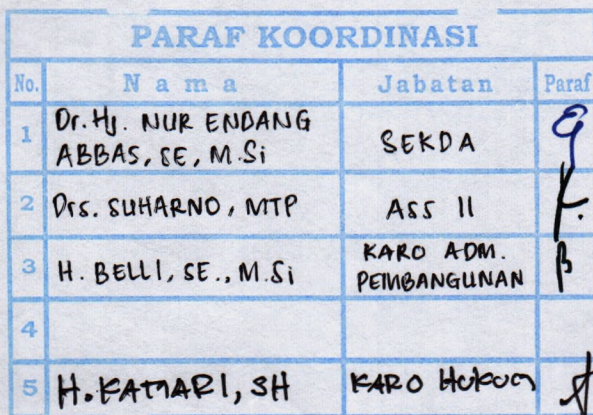 PARAF KOORDINASI
No. Nama Jabatan Paraf
1 Dr. Hj. NUR ENDANG
ABBAS, SE, M.Si
SEKDA
2 Drs. SUHARNO, MTP ASS II
3 H. BELLI, SE., M.Si
KARO ADM.
PEMBANGUNAN
4
5 H. KAMARI, SH KARO HUKUM